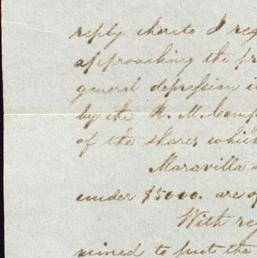 reply thereto I reg
approaching the pr
general depression i
by the R. M. Comp
of the shares which
Maravilla
under $5000. are of
With re
mined to put the